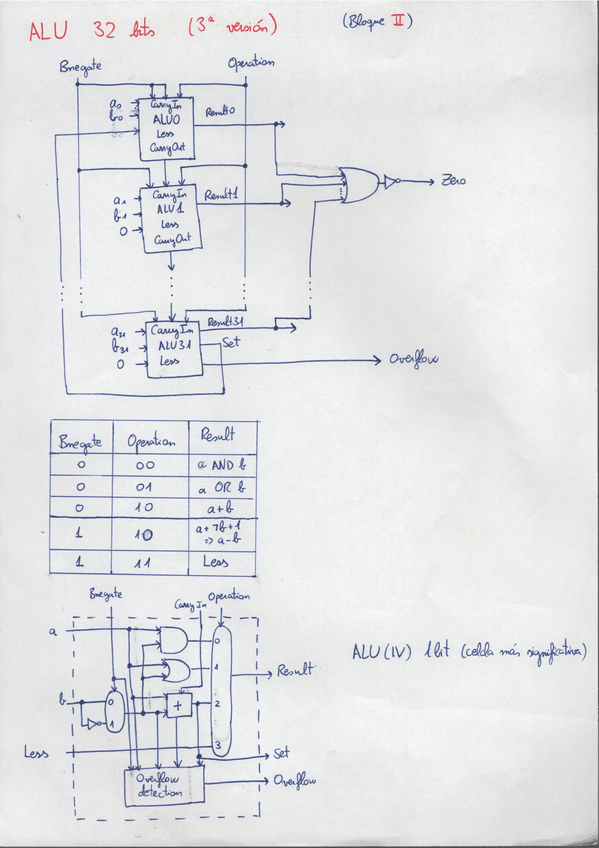 ALU 32 bits (3ª versión)
(Bloque II)
Bnegate
Operation
a0
b0
CarryIn
ALU0
Less
CarryOut
Result0
a1
b1
0
CarryIn
ALU1
Less
CarryOut
Result1
Zero
a31
b31
0
CarryIn
ALU31
Less
Result31
Set
Overflow
Bnegate Operation Result
0 00 a AND b
0 01 a OR b
0 10 a+b
1 10 a+7b+1
=> a-b
1 11 Less
Bnegate
Carry In
Operation
a
b
0
1
+
0
1
2
3
Result
Less
Set
Overflow
detection
Overflow
ALU (IV) 1bit (celda más significativa)